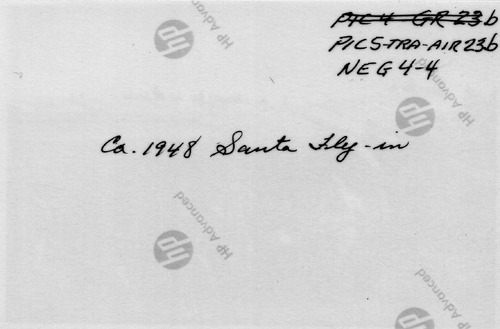 PIC 4 GR 23b
PICS-TRA-AIR23b
NEG 4-4
Ca. 1948 Santa Fly-in
hp HP Advanced
HP Advanced
hp HP Advanced
hp HP Advanced
hp HP Advanced